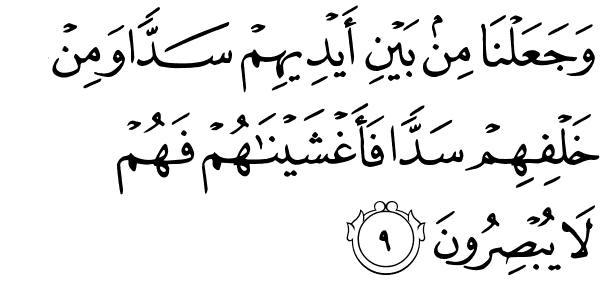 وَجَعَلۡنَا مِنۢ بَيۡنِ أَيۡدِيهِمۡ سَدّٗا وَمِنۡ
خَلۡفِهِمۡ سَدّٗا فَأَغۡشَيۡنَٰهُمۡ فَهُمۡ
لَا يُبۡصِرُونَ ٩